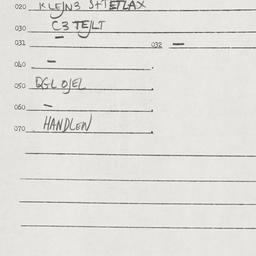 020 KLEJN3 S+TETLAX
030 C3 TEJLT
031 — 032 —
040 —
050 DGL OJEL
060 —
070 HANDLEN